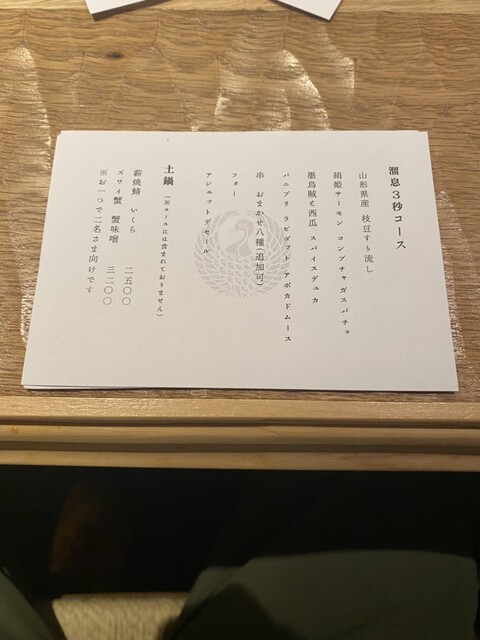 溜息3秒コース
山形県産 枝豆すり流し
絹姫サーモン コンブチャガスパチョ
墨烏賊と西瓜 スパイスデュカ
パニプリ ラビゴット アボカドムース
串 おまかせ八種(追加可)
フォー
アシェットデセール
土鍋(※コースには含まれておりません)
薪焼鯖 いくら 二五〇〇
ズワイ蟹 蟹味噌 三二〇〇
※お一つで二名さま向けです